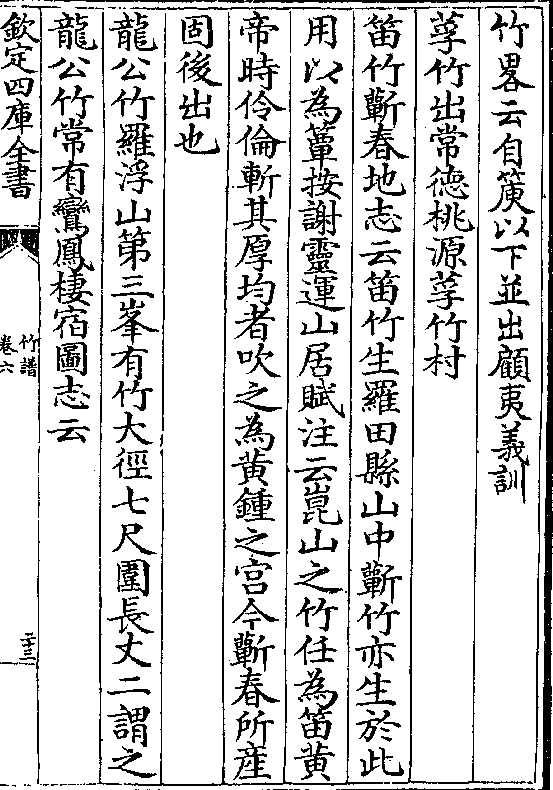 竹畧云自䉛以下並出顧夷義訓
莩竹出常德桃源莩竹村
笛竹蘄春地志云笛竹生羅田縣山中蘄竹亦生於此
用以為簟按謝靈運山居賦注云崑山之竹任為笛黃
帝時伶倫斬其厚均者吹之為黃鍾之宫今蘄春所産
固後出也
龍公竹羅浮山第三峯有竹大徑七尺圍長丈二謂之
龍公竹常有鸞鳳棲宿圖志云
欽定四庫全書
竹譜
卷六
二十三